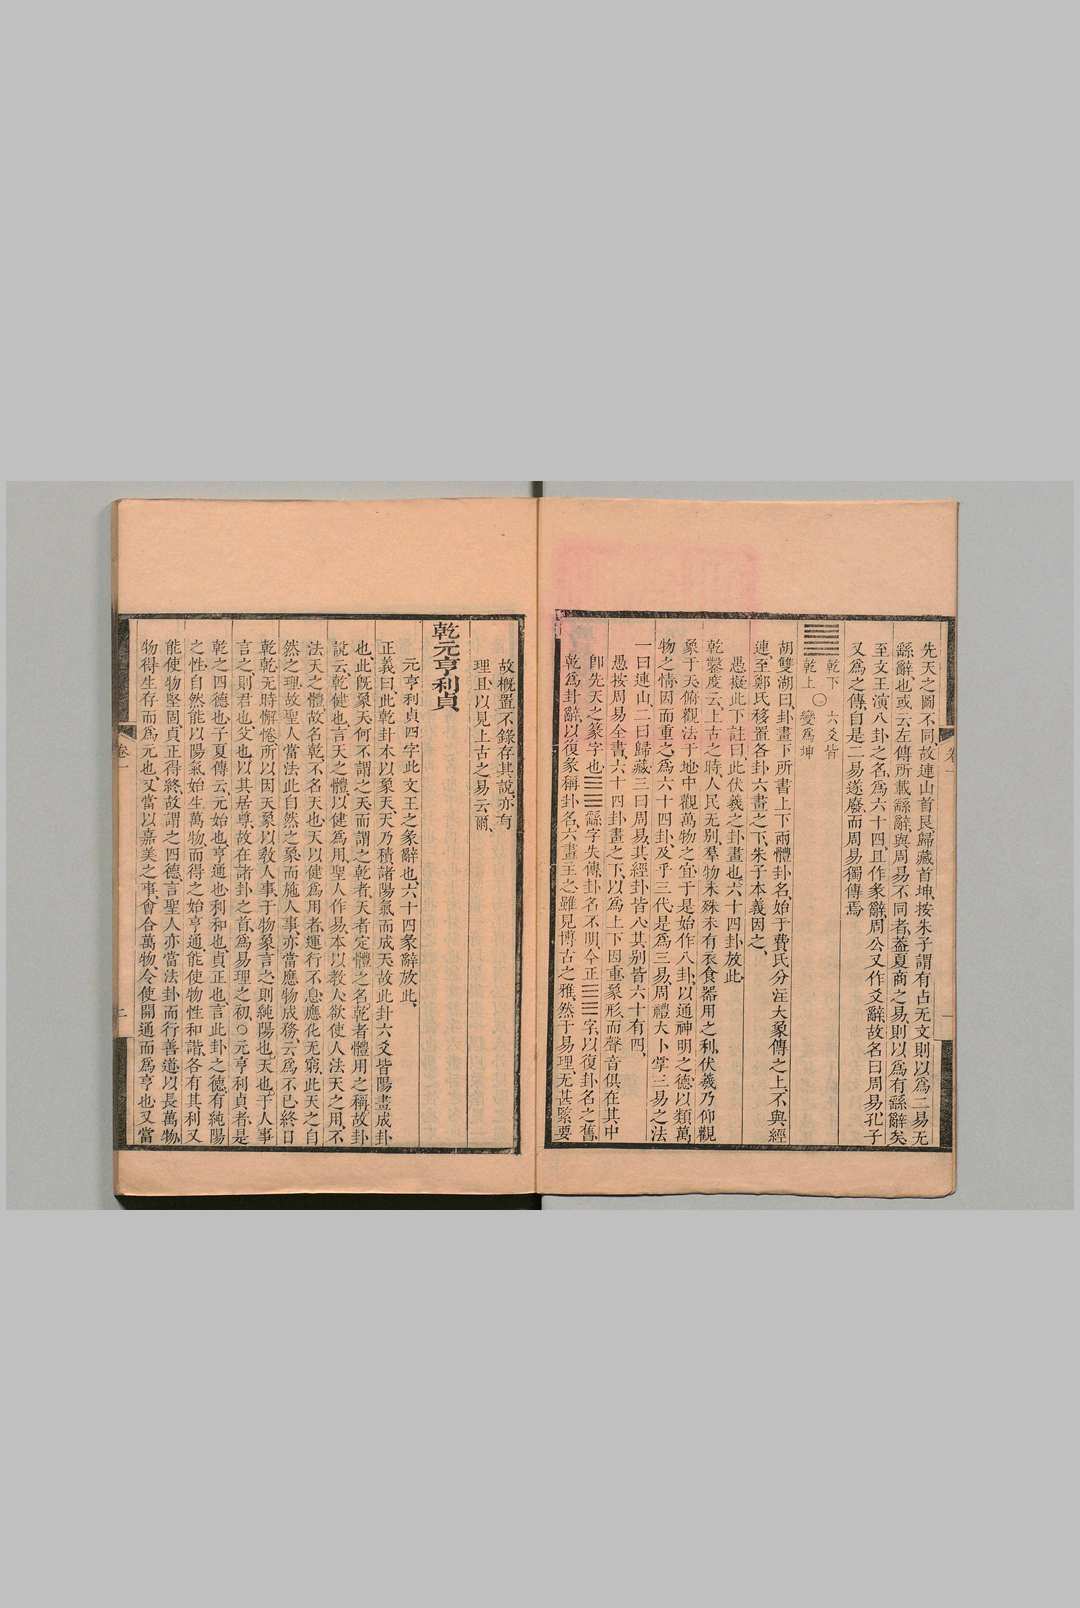 先天之圖不同故連山首艮歸藏首坤、按朱子謂有占无文則以爲二易无
繇辭、也或云左傳所載繇辭、與周易不同者、蓋夏商之易、則以爲有繇辭矣
至文王演八卦之名、爲六十四、且作彖辭、周公又作爻辭、故名曰周易孔子
又爲之傳、自是二易遂廢、而周易獨傳焉
乾下 六爻皆
乾上 ○ 變爲坤
胡雙湖曰、卦畫下所書上下兩體卦名、始于費氏分注大象傳之上、不與經
連、至鄭氏移置各卦六畫之下、朱子本義因之、
愚擬此下註曰此伏羲之卦畫也、六十四卦放此
乾鑿度云、上古之時、人民无別、羣物未殊、未有衣食器用之利、伏羲乃仰觀
象于天、俯觀法于地、中觀萬物之宜、于是始作八卦、以通神明之德、以類萬
物之情、因而重之、爲六十四卦及乎三代是爲三易、周禮大卜掌三易之法
一曰連山、二曰歸藏、三曰周易、其經卦皆八、其別皆六十有四、
愚按周易全書、六十四卦畫之下、以爲上下因重象形、而聲音俱在其中
卽先天之篆字也、繇字失傳、卦名不明、今正字、以復卦名之舊、
乾爲卦辭、以復彖稱卦名、六畫主之、雖見博古之雅、然于易理、无甚緊要
卷一
一
故概置不錄、存其說、亦有
理、且以見上古之易云爾、
乾元亨利貞、
元亨利貞四字此文王之彖辭也、六十四彖辭放此、
正義曰、此乾卦本以象天、天乃積諸陽氣而成天、故此卦六爻皆陽畫成卦
也、此旣象天、何不謂之天、而謂之乾者、天者定體之名、乾者體用之稱、故卦
說云、乾健也、言天之體、以健爲用、聖人作易、本以教人、欲使人法天之用、不
法天之體、故名乾、不名天也、天以健爲用者、運行不息、應化无窮、此天之自
然之理、故聖人當法此自然之象、而施人事、亦當應物成務、云爲不已、終日
乾乾、无時懈倦、所以因天象以教人事、于物象言之、則純陽也、天也、于人事
言之、則君也、父也、以其居尊、故在諸卦之首、爲易理之初、○元亨利貞者、是
乾之四德也、子夏傳云、元始也、亨通也、利和也、貞正也、言此卦之德、有純陽
之性、自然能以陽氣始生萬物、而得之始亨通、能使物性和諧、各有其利、又
能使物堅固、貞正得終、故謂之四德、言聖人亦當法卦而行善道、以長萬物、
物得生存、而爲元也、又當以嘉美之事、會合萬物、令使開通而爲亨也、又當
卷一
二